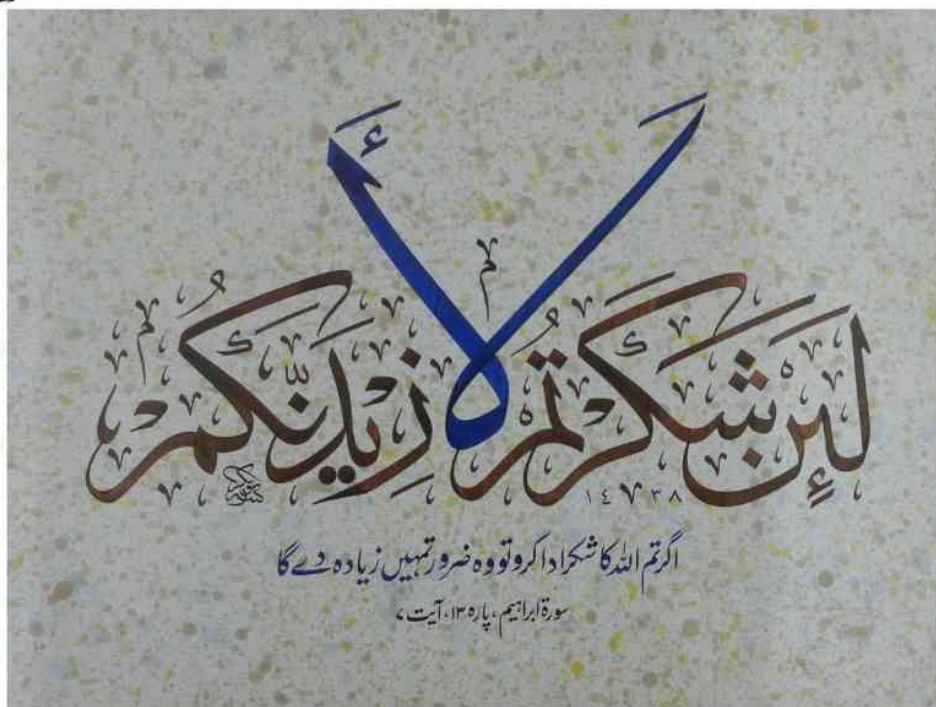 لَئِن شَكَرْتُمْ لَأَزِيدَنَّكُمْ
١٤٣٨
اگر تم اللہ کا شکر ادا کرو تو وہ ضرور تمہیں زیادہ دے گا
سورۃ ابراہیم، پارہ ۱۳، آیت ۷